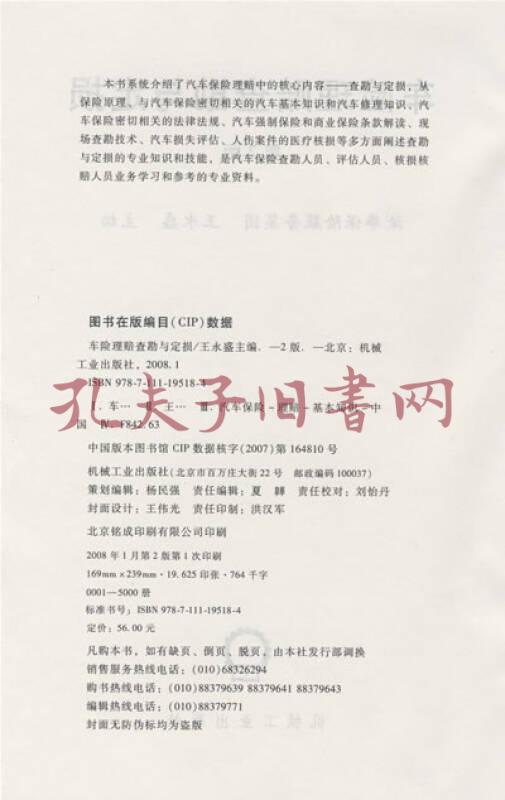 本书系统介绍了汽车保险理赔中的核心内容——查勘与定损，从
保险原理、与汽车保险密切相关的汽车基本知识和汽车修理知识、汽
车保险密切相关的法律法规、汽车强制保险和商业保险条款解读、现
场查勘技术、汽车损失评估、人伤案件的医疗核损等多方面阐述查勘
与定损的专业知识和技能，是汽车保险查勘人员、评估人员、核损核
赔人员业务学习和参考的专业资料。
图书在版编目(CIP)数据
车险理赔查勘与定损/王永盛主编．—2版．—北京：机械
工业出版社，2008.1
ISBN 978-7-111-19518-4
Ⅰ．车… Ⅱ．王… Ⅲ．汽车保险－理赔－基本知识－中
国 Ⅳ．F842.63
孔夫子旧书网
中国版本图书馆CIP数据核字(2007)第164810号
机械工业出版社(北京市百万庄大街22号 邮政编码100037)
策划编辑：杨民强 责任编辑：夏 韡 责任校对：刘怡丹
封面设计：王伟光 责任印制：洪汉军
北京铭成印刷有限公司印刷
2008年1月第2版第1次印刷
169mm×239mm·19.625印张·764千字
0001—5000册
标准书号：ISBN 978-7-111-19518-4
定价：56.00元
凡购本书，如有缺页、倒页、脱页，由本社发行部调换
销售服务热线电话：(010)68326294
购书热线电话：(010)88379639 88379641 88379643
编辑热线电话：(010)88379771
封面无防伪标均为盗版